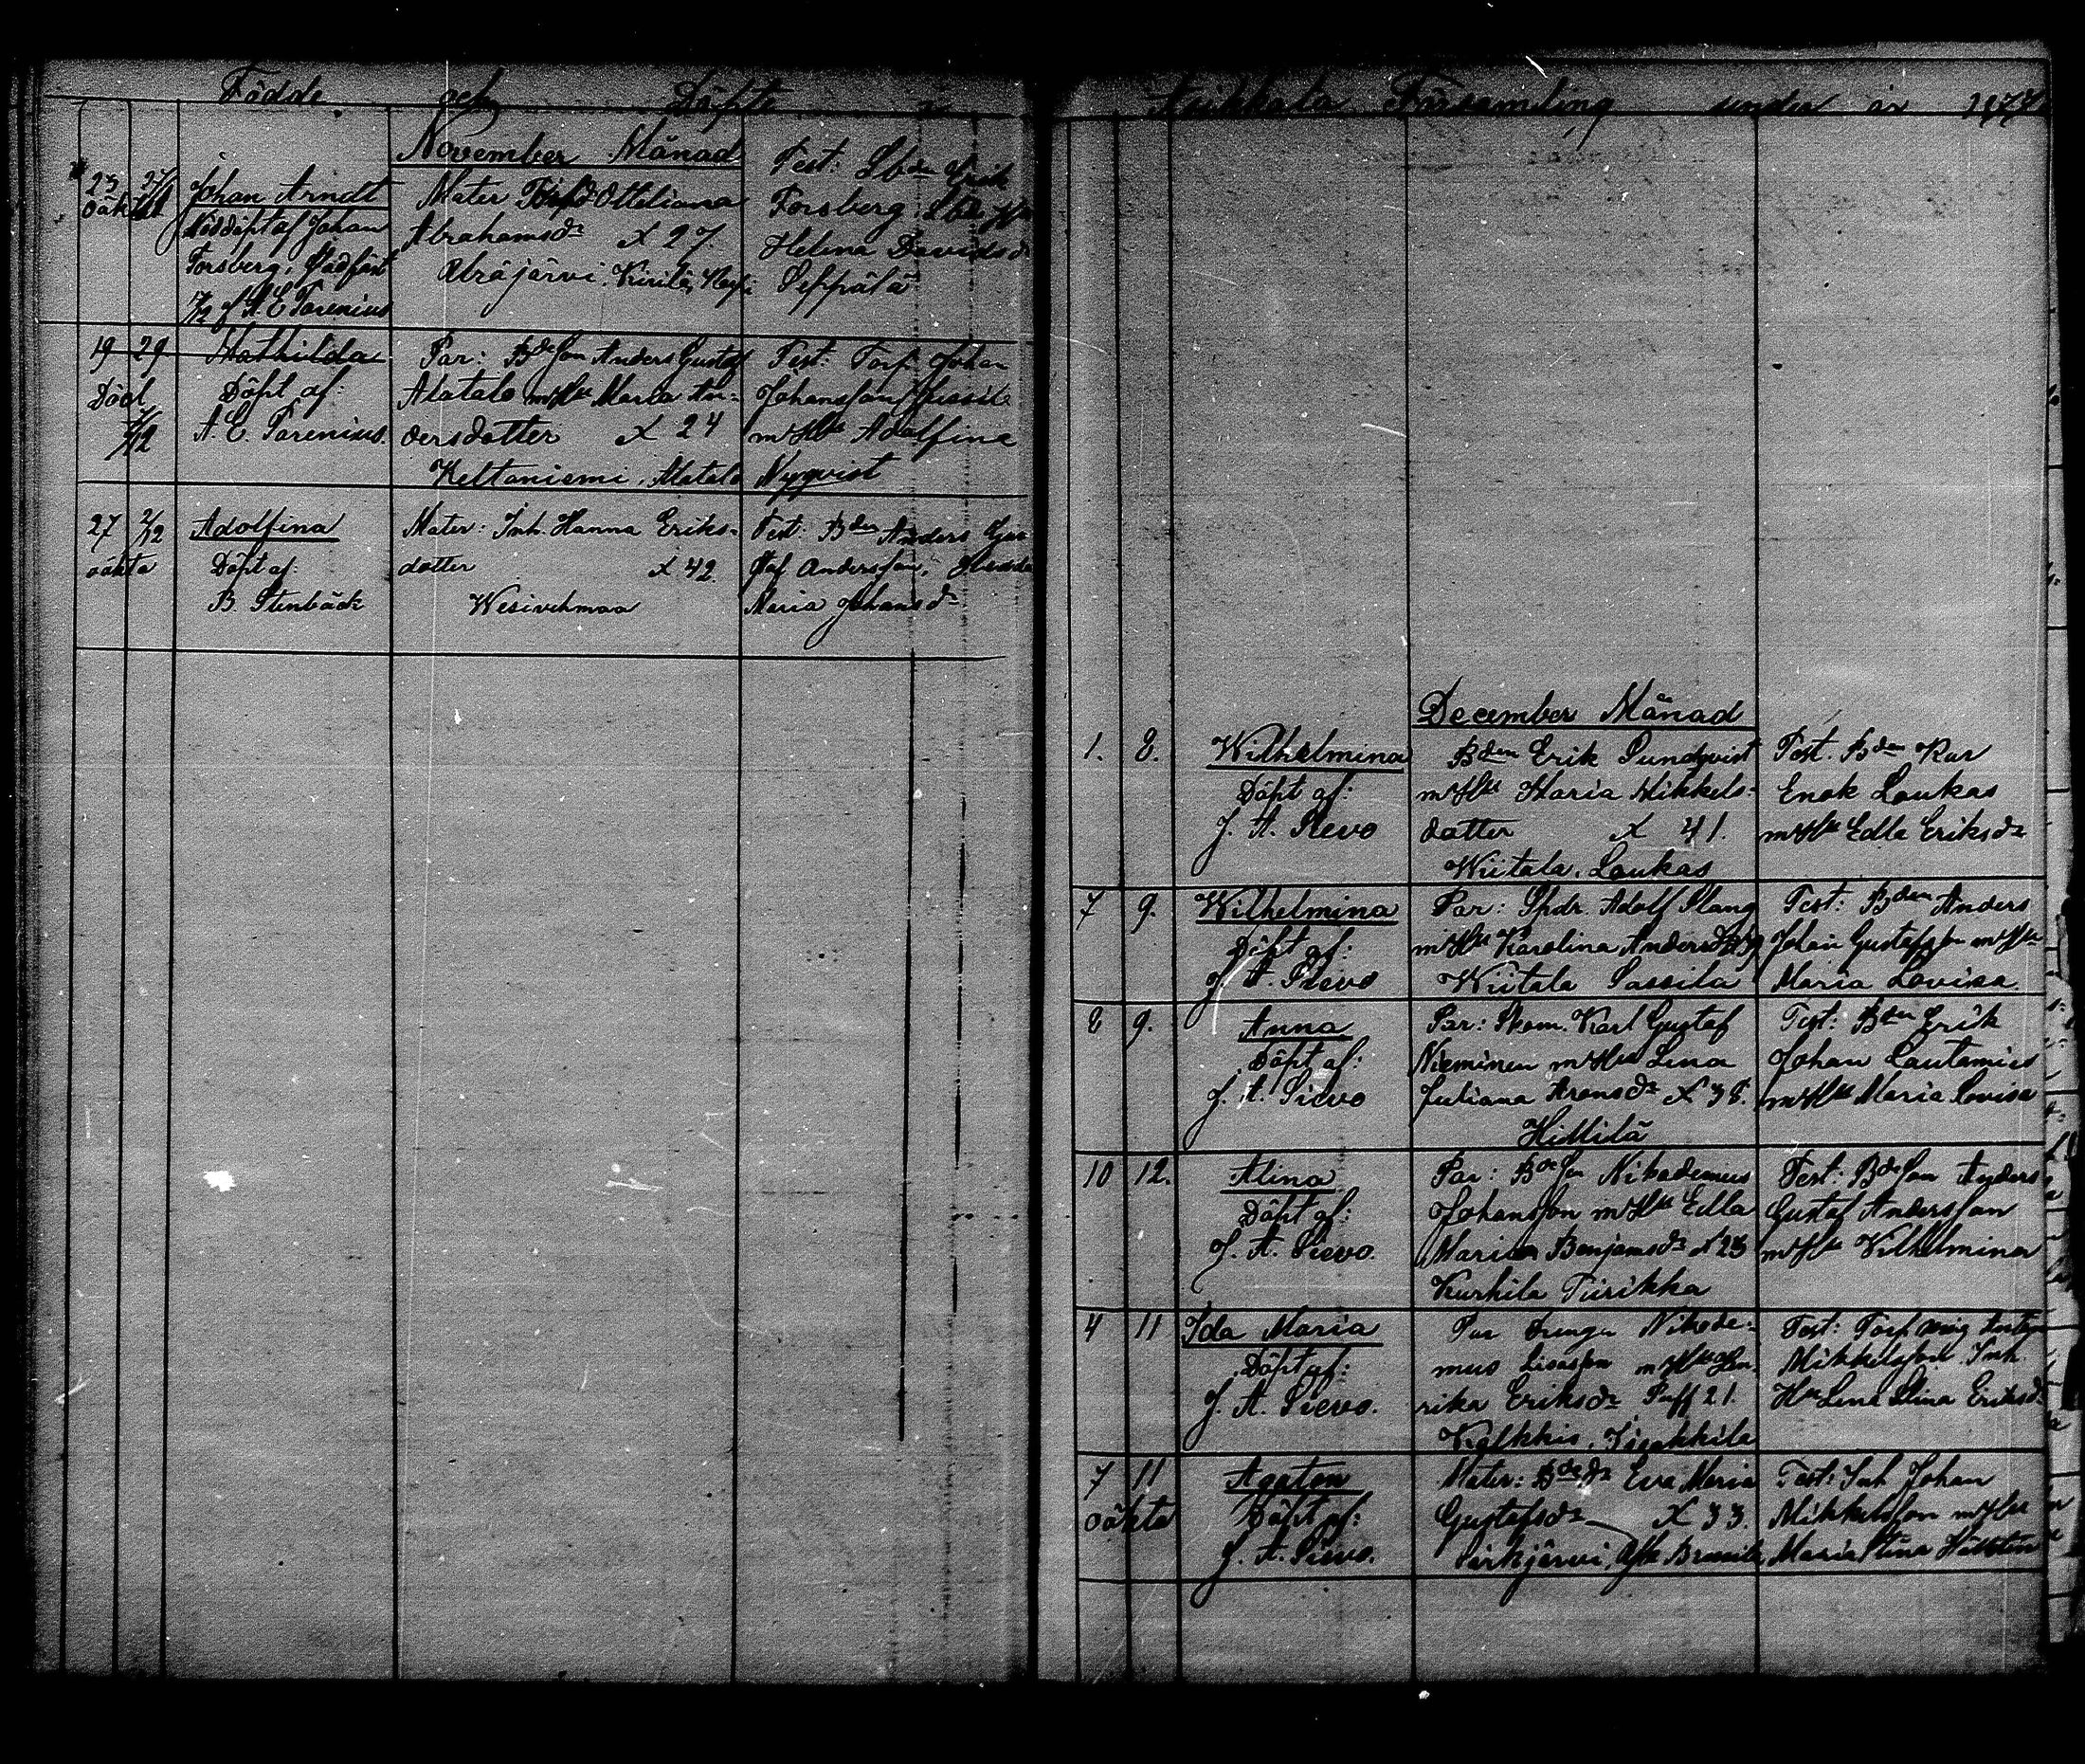 Födde och Döpte i Asikkala Församling under år 1877
November Månad
23 27/11 Johan Arndt
oäkta
Nöddöpt af Johan
Forsberg, Stadfäst
7/12 af A. E. Torenius
Mater Ottiliana
Abrahamsdr x 27
Uräjärvi
Test: Lbdn Erik
Forsberg
Helena Davidsdr
Seppälä
19 29 Mathilda
Död 7/12
Döpt af:
A. E. Torenius
Par: Bdeson Anders Gustaf
Alatalo m Hu Maria An-
dersdotter x 24
Keltaniemi, Alatalo
Test: Torp. Johan
Johansson
m Hu Adolfina
Nyqvist
27 2/12 Adolfina
oäkta
Döpt af:
B. Stenbäck
Mater: Inh. Hanna Eriks-
dotter x 42
Wesivehmaa
Test: Bden Anders Gus
taf Andersson,
Maria Johansdr
December Månad
1. 8. Wilhelmina
Döpt af:
J. A. Sievo
Bden Erik Sundqvist
m Hu Maria Mikkels-
dotter x 41.
Wiitala, Laukas
Test. Bden Kar
Enok Laukas
m Hu Edla Eriksdr
7 9. Wilhelmina
Döpt af:
J. A. Sievo
Par: Spdr. Adolf Stång
m Hu Karolina Andersdr
Wiitala Sassila
Test: Bden Anders
Johan Gustafsson m Hu
Maria Lovisa
8 9. Anna
Döpt af:
J. A. Sievo
Par: Skom. Karl Gustaf
Nieminen m Hu Lena
Juliana Aronsdr x 38.
Hillilä
Test: Bden Erik
Johan Lautamies
m Hu Maria Lovisa
10 12. Alina
Döpt af:
J. A. Sievo.
Par: Bdeson Nikodemus
Johansson m Hu Edla
Maria Benjamsdr x 23
Kurhila Tiirikka
Test: Bdeson Anders
Gustaf Andersson
m Hu Vilhelmina
4 11 Ida Maria
Döpt af:
J. A. Sievo.
Par Drengn Nikode-
mus Lisasson m Hu Hen-
rika Eriksdr 21.
Kalkkis, Iisakkila
Test: Torp
Mikkelsson Inh.
Hu Lena Stina Eriksdr
7 11 Agaton
oäkta
Döpt af:
J. A. Sievo.
Mater: Bdedr Eva Maria
Gustafsdr x 33.
Särkjärvi
Test: Inh Johan
Mikkelsson m Hu
Maria Stina